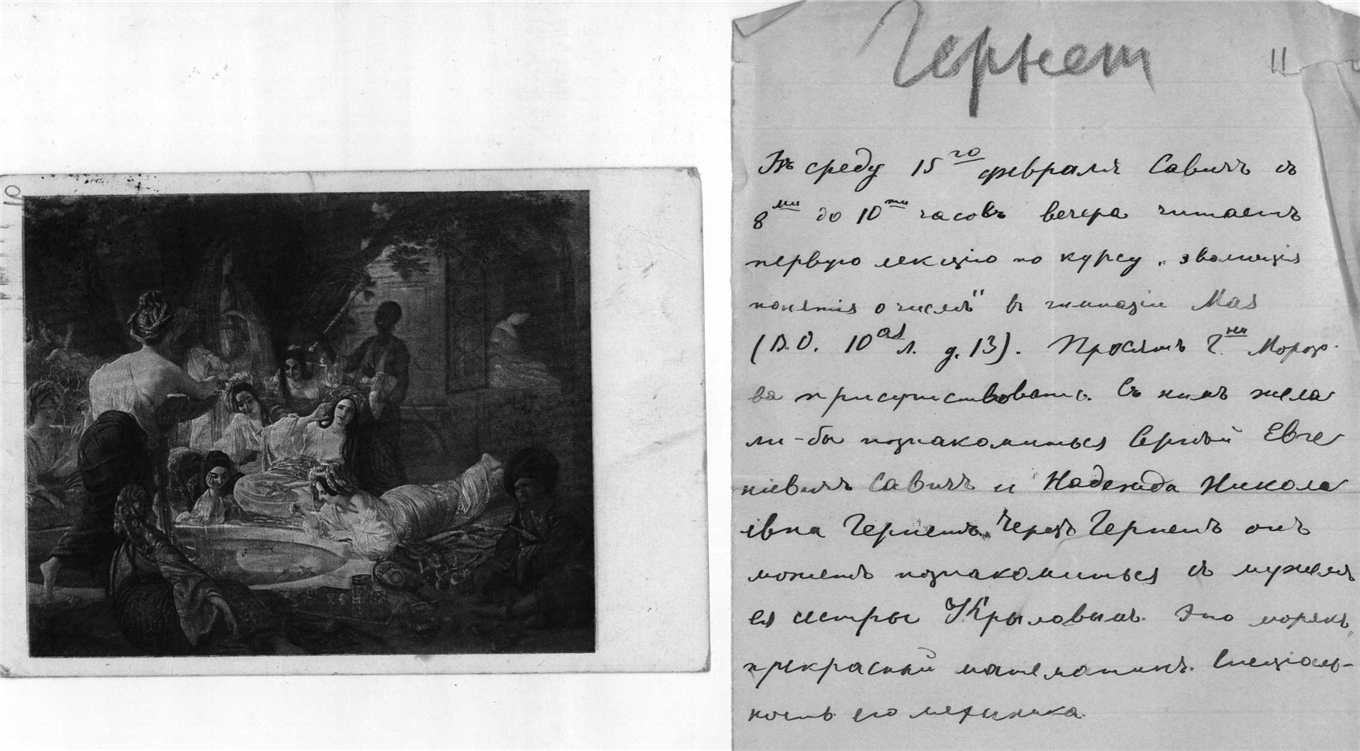 10
Гернет
11
Въ среду 15го февраля Савичъ съ
8ми до 10ти часовъ вечера читаетъ
первую лекцію по курсу „эволюція
понятія о числѣ" въ гимназіи Мая
(В.О. 10ая л. д. 13). Просятъ Г.на Морозо-
ва присутствовать. Съ нимъ жела
ли-бы познакомиться Сергѣй Евге
ніевичъ Савичъ и Надежда Никола
евна Гернетъ. Черезъ Гернетъ онъ
можетъ познакомиться съ мужемъ
ея сестры Крыловымъ. Это морякъ,
прекрасный математикъ. Спеціаль-
ность его механика.